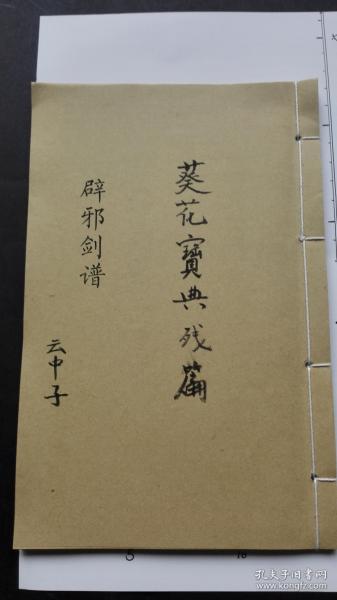 葵花寶典残篇
辟邪剑谱
云中子
孔夫子旧书网